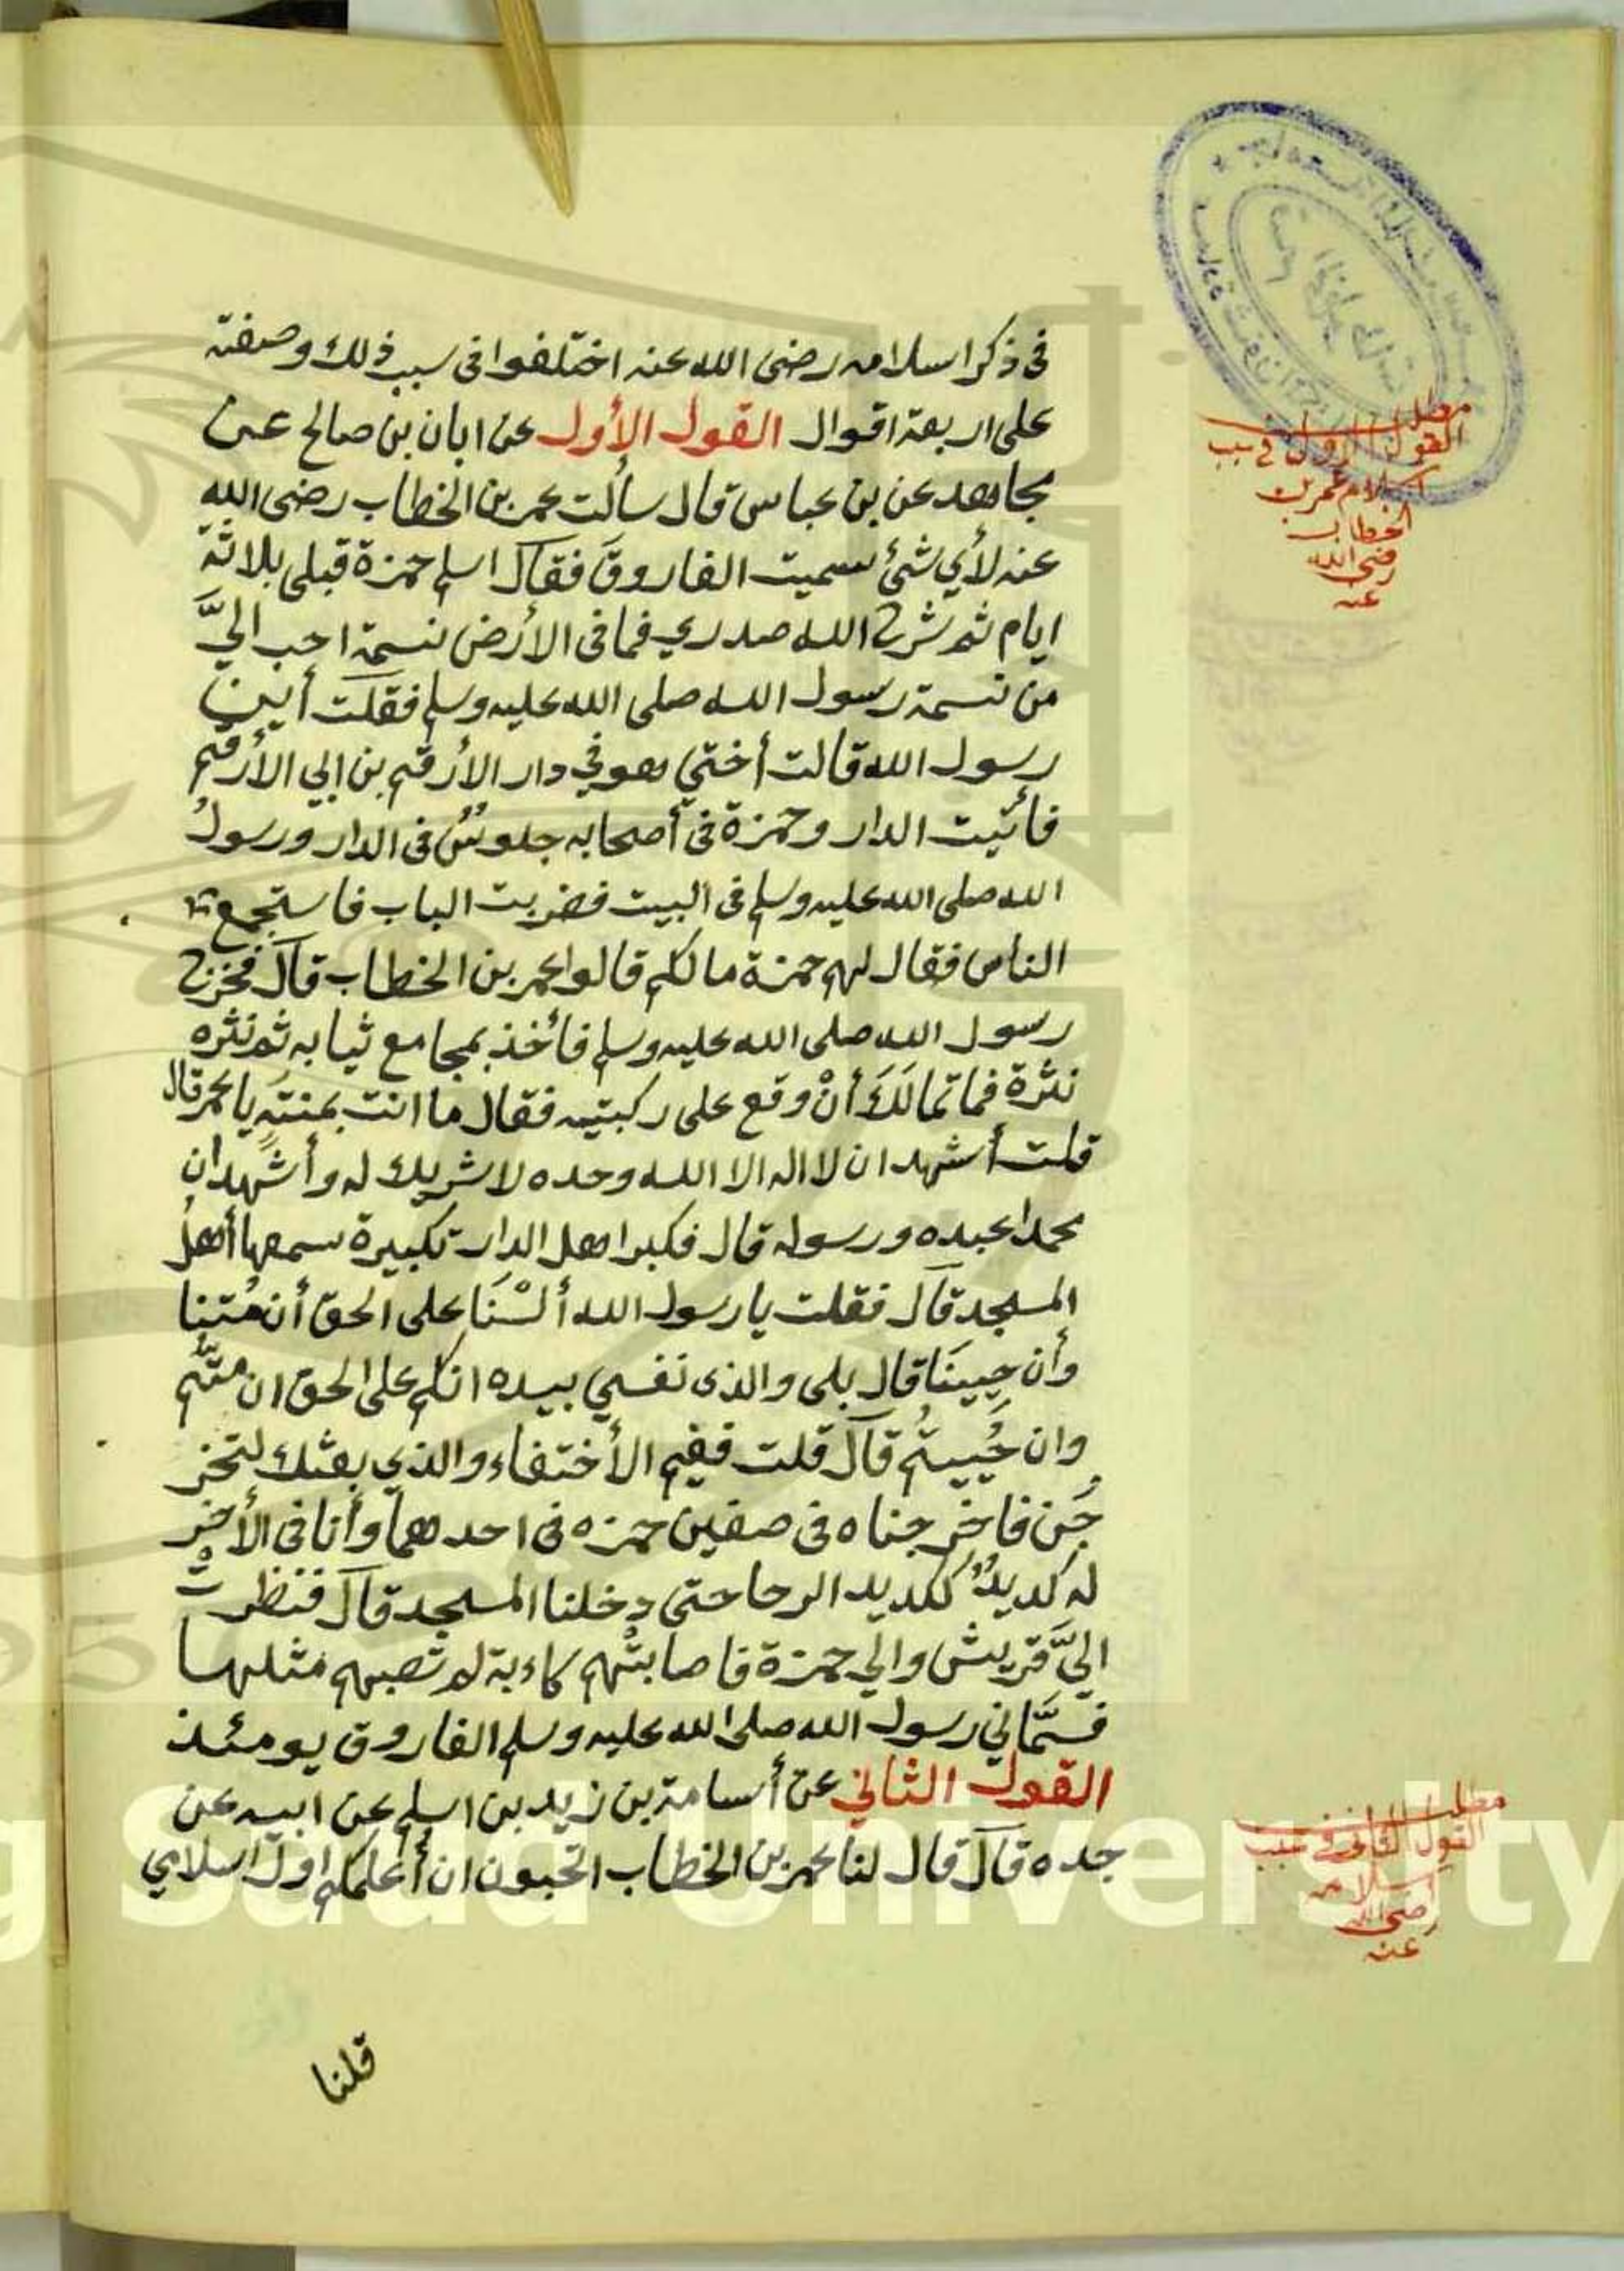 فى ذكر اسلامه رضى الله عنه اختلفوا فى سبب ذلك وصفته
على اربعة اقوال القول الأول عن ابان بن صالح عن
مجاهد عن بن عباس قال سألت عمر بن الخطاب رضى الله
عنه لأي شئ سميت الفاروقَ فقال اسلم حمزة قبلى بثلاثة
ايام ثم شرح الله صدري فما فى الأرض نسمة احب اليَّ
من نسمة رسول الله صلى الله عليه وسلم فقلت أين
رسول الله قالت أختي هو في دار الأرقم بن ابي الأرقم
فأتيت الدار وحمزة فى أصحابه جلوسٌ فى الدار ورسولُ
الله صلى الله عليه وسلم فى البيت فضربت الباب فاستجمع
الناس فقال لهم حمزة مالكم قالوا عمر بن الخطاب قال فخرج
رسول الله صلى الله عليه وسلم فأخذ بمجامع ثيابه ثم نثره
نثرة فما تمالَكَ أنْ وقع على ركبتيه فقال ما انت بمنتهٍ يا عمر قال
قلت أشهد ان لا اله الا الله وحده لا شريك له وأشهد ان
محمدا عبده ورسوله قال فكبر اهل الدار تكبيرة سمعها أهلُ
المسجد قال فقلت يا رسول الله ألسْنَا على الحق أن مُتنا
وأن حيينَا قال بلى والذى نفسي بيده انكم على الحق ان متُّم
وان حُييتُم قال قلت ففيم الأختفاء والذي بعثك لتخر
جُن فاخرجناه فى صفين حمزه فى احدهما وأنا فى الأخر
له كديدٌ ككديد الرحا حتى دخلنا المسجد قال فنظرتْ
اليَّ قريش والي حمزة فاصابتْهم كاءبة لم تصبهم مثلها
فسمَّاني رسول الله صلى الله عليه وسلم الفاروق يومئذ
القول الثاني عن أسامة بن زيد بن اسلم عن ابيه عن
جده قال قال لنا عمر بن الخطاب اتحبون ان أعلمكم اول اسلامي
قلنا
مطلب
القول الاول في سبب
اسلام عمر بن
الخطاب
رضى الله
عنه
مطلب
القول الثانى فى سبب
اسلامه
رضى الله
عنه
Saud University